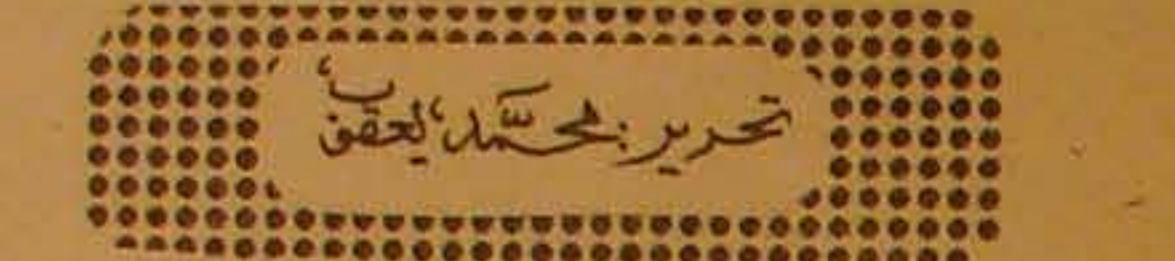 تحریر: محمّد یعقوب